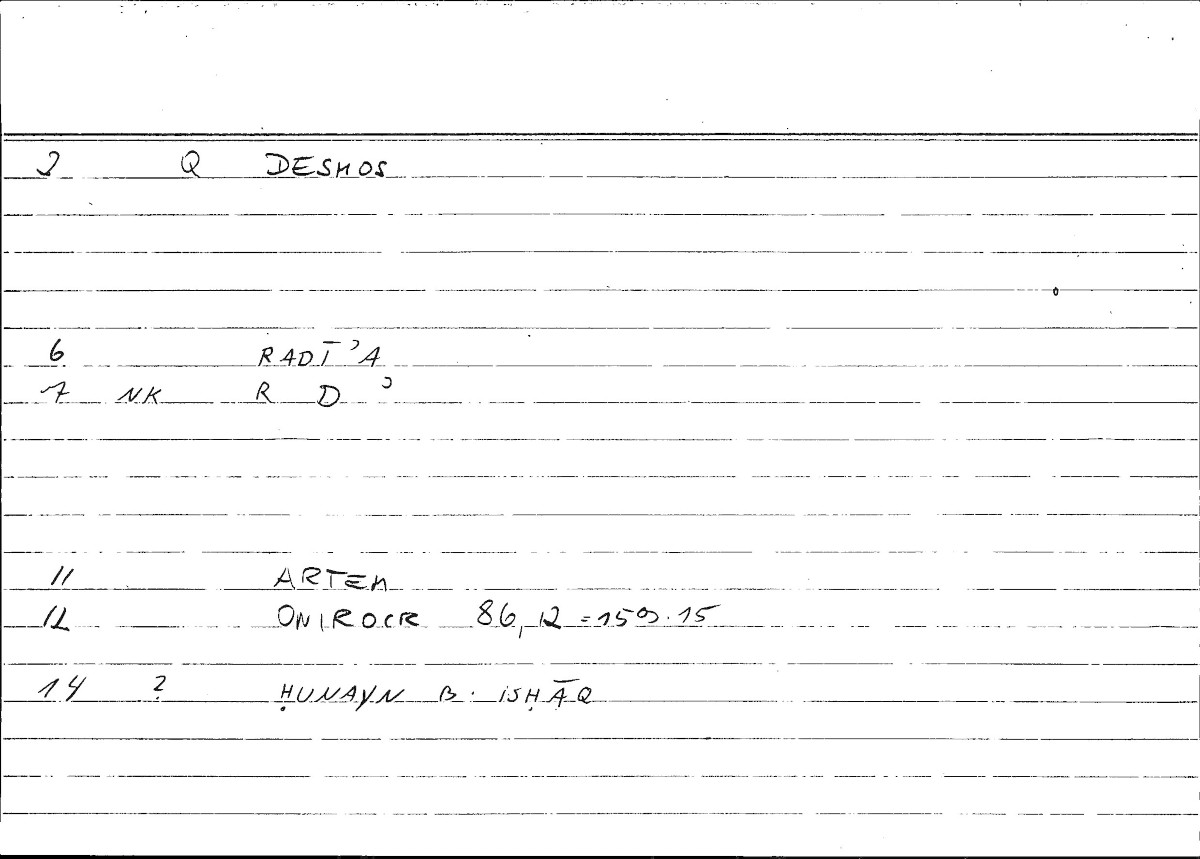 2 Q DESMOS
6 RADĪʾA
7 NK R D ʾ
11 ARTEM
12 ONIROCR 86,12 = 159.15
14 ? ḤUNAYN B. ISḤĀQ